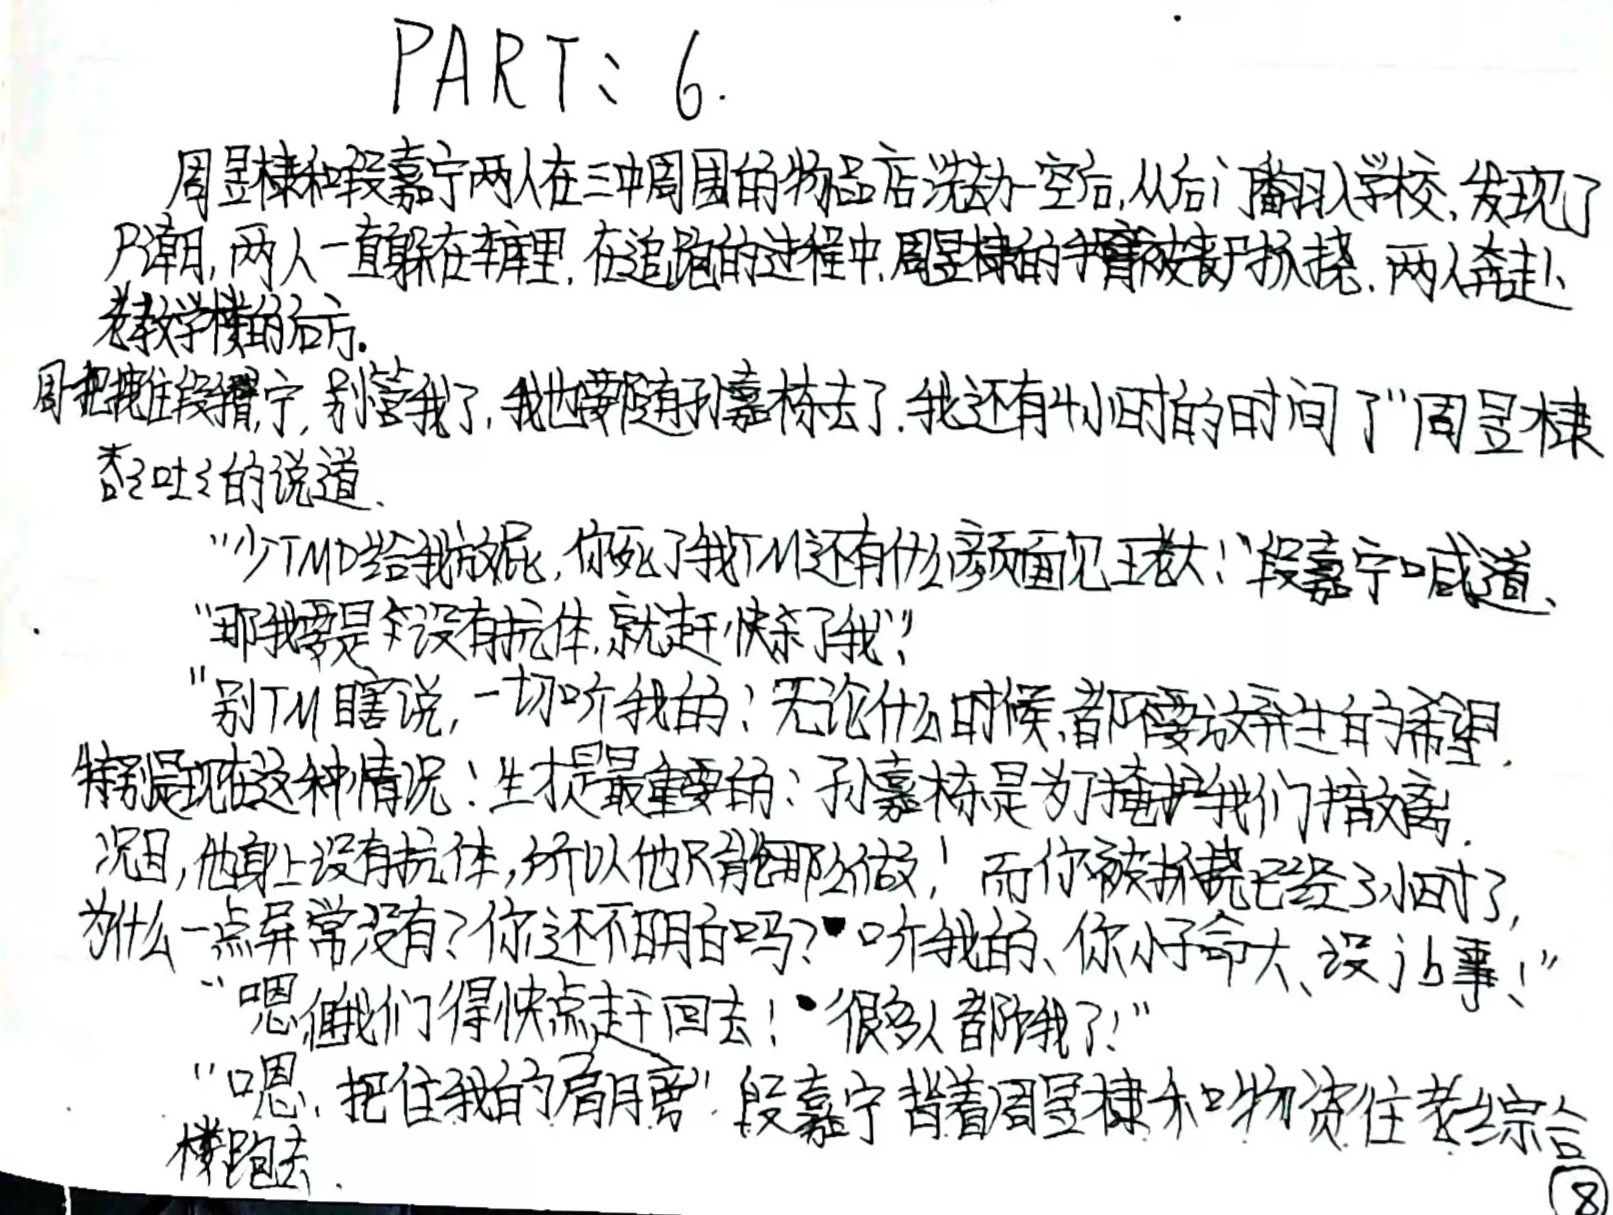 PART: 6.
周昱棣和段嘉宁两人在三中周围的物品店洗劫一空后,从后门翻入学校,发现了
尸潮,两人一直躲在车库里,在追跑的过程中,周昱棣的手臂被丧尸抓挠,两人奔赴
老教学楼的后方.
周把拽住段嘉宁,别管我了,我也要随孙嘉栋去了.我还有4小时的时间了"周昱棣
吞吞吐吐的说道.
"少TMD给我放屁,你死了我TM还有什么颜面见王老大!"段嘉宁喊道、
"那我要是没有抗体,就赶快杀了我"!
"别TM瞎说,一切听我的!无论什么时候,都不要放弃生的希望,
特别是现在这种情况!生才是最重要的!孙嘉栋是为了掩护我们撤离.
况且,他身上没有抗体,所以他只能那么做!而你被抓挠已经3小时了,
为什么一点异常没有?你还不明白吗?听我的、你小子命大、没事!"
"嗯,但我们得快点赶回去!很多人都饿了!"
"嗯,把住我的肩膀"段嘉宁背着周昱棣和物资往老综合
楼跑去.
8